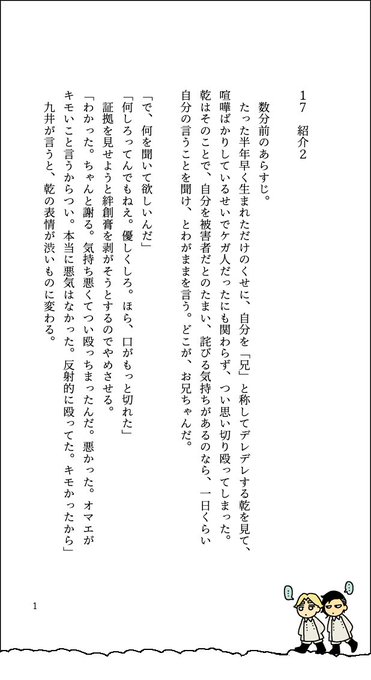 17　紹介2
数分前のあらすじ。
たった半年早く生まれただけのくせに、自分を「兄」と称してデレデレする乾を見て、
喧嘩ばかりしているせいでケガ人だったにも関わらず、つい思い切り殴ってしまった。
乾はそのことで、自分を被害者だとのたまい、詫びる気持ちがあるのなら、一日くらい
自分の言うことを聞け、とわがままを言う。どこが、お兄ちゃんだ。
「で、何を聞いて欲しいんだ」
「何しろってんでもねえ。優しくしろ。ほら、口がもっと切れた」
証拠を見せようと絆創膏を剥がそうとするのでやめさせる。
「わかった。ちゃんと謝る。気持ち悪くてつい殴っちまったんだ。悪かった。オマエが
キモいこと言うからつい。本当に悪気はなかった。反射的に殴ってた。キモかったから」
九井が言うと、乾の表情が渋いものに変わる。
1